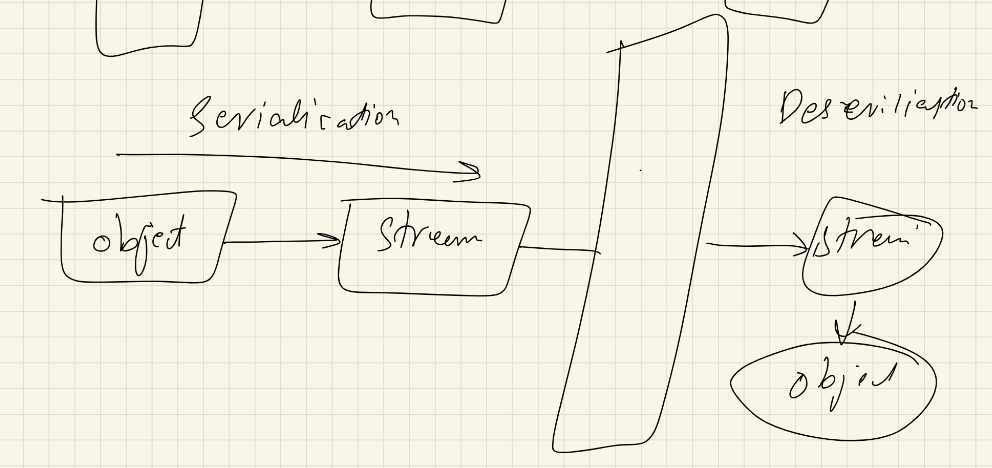 Serialization
Deserilization
object
Stream
Stream
object